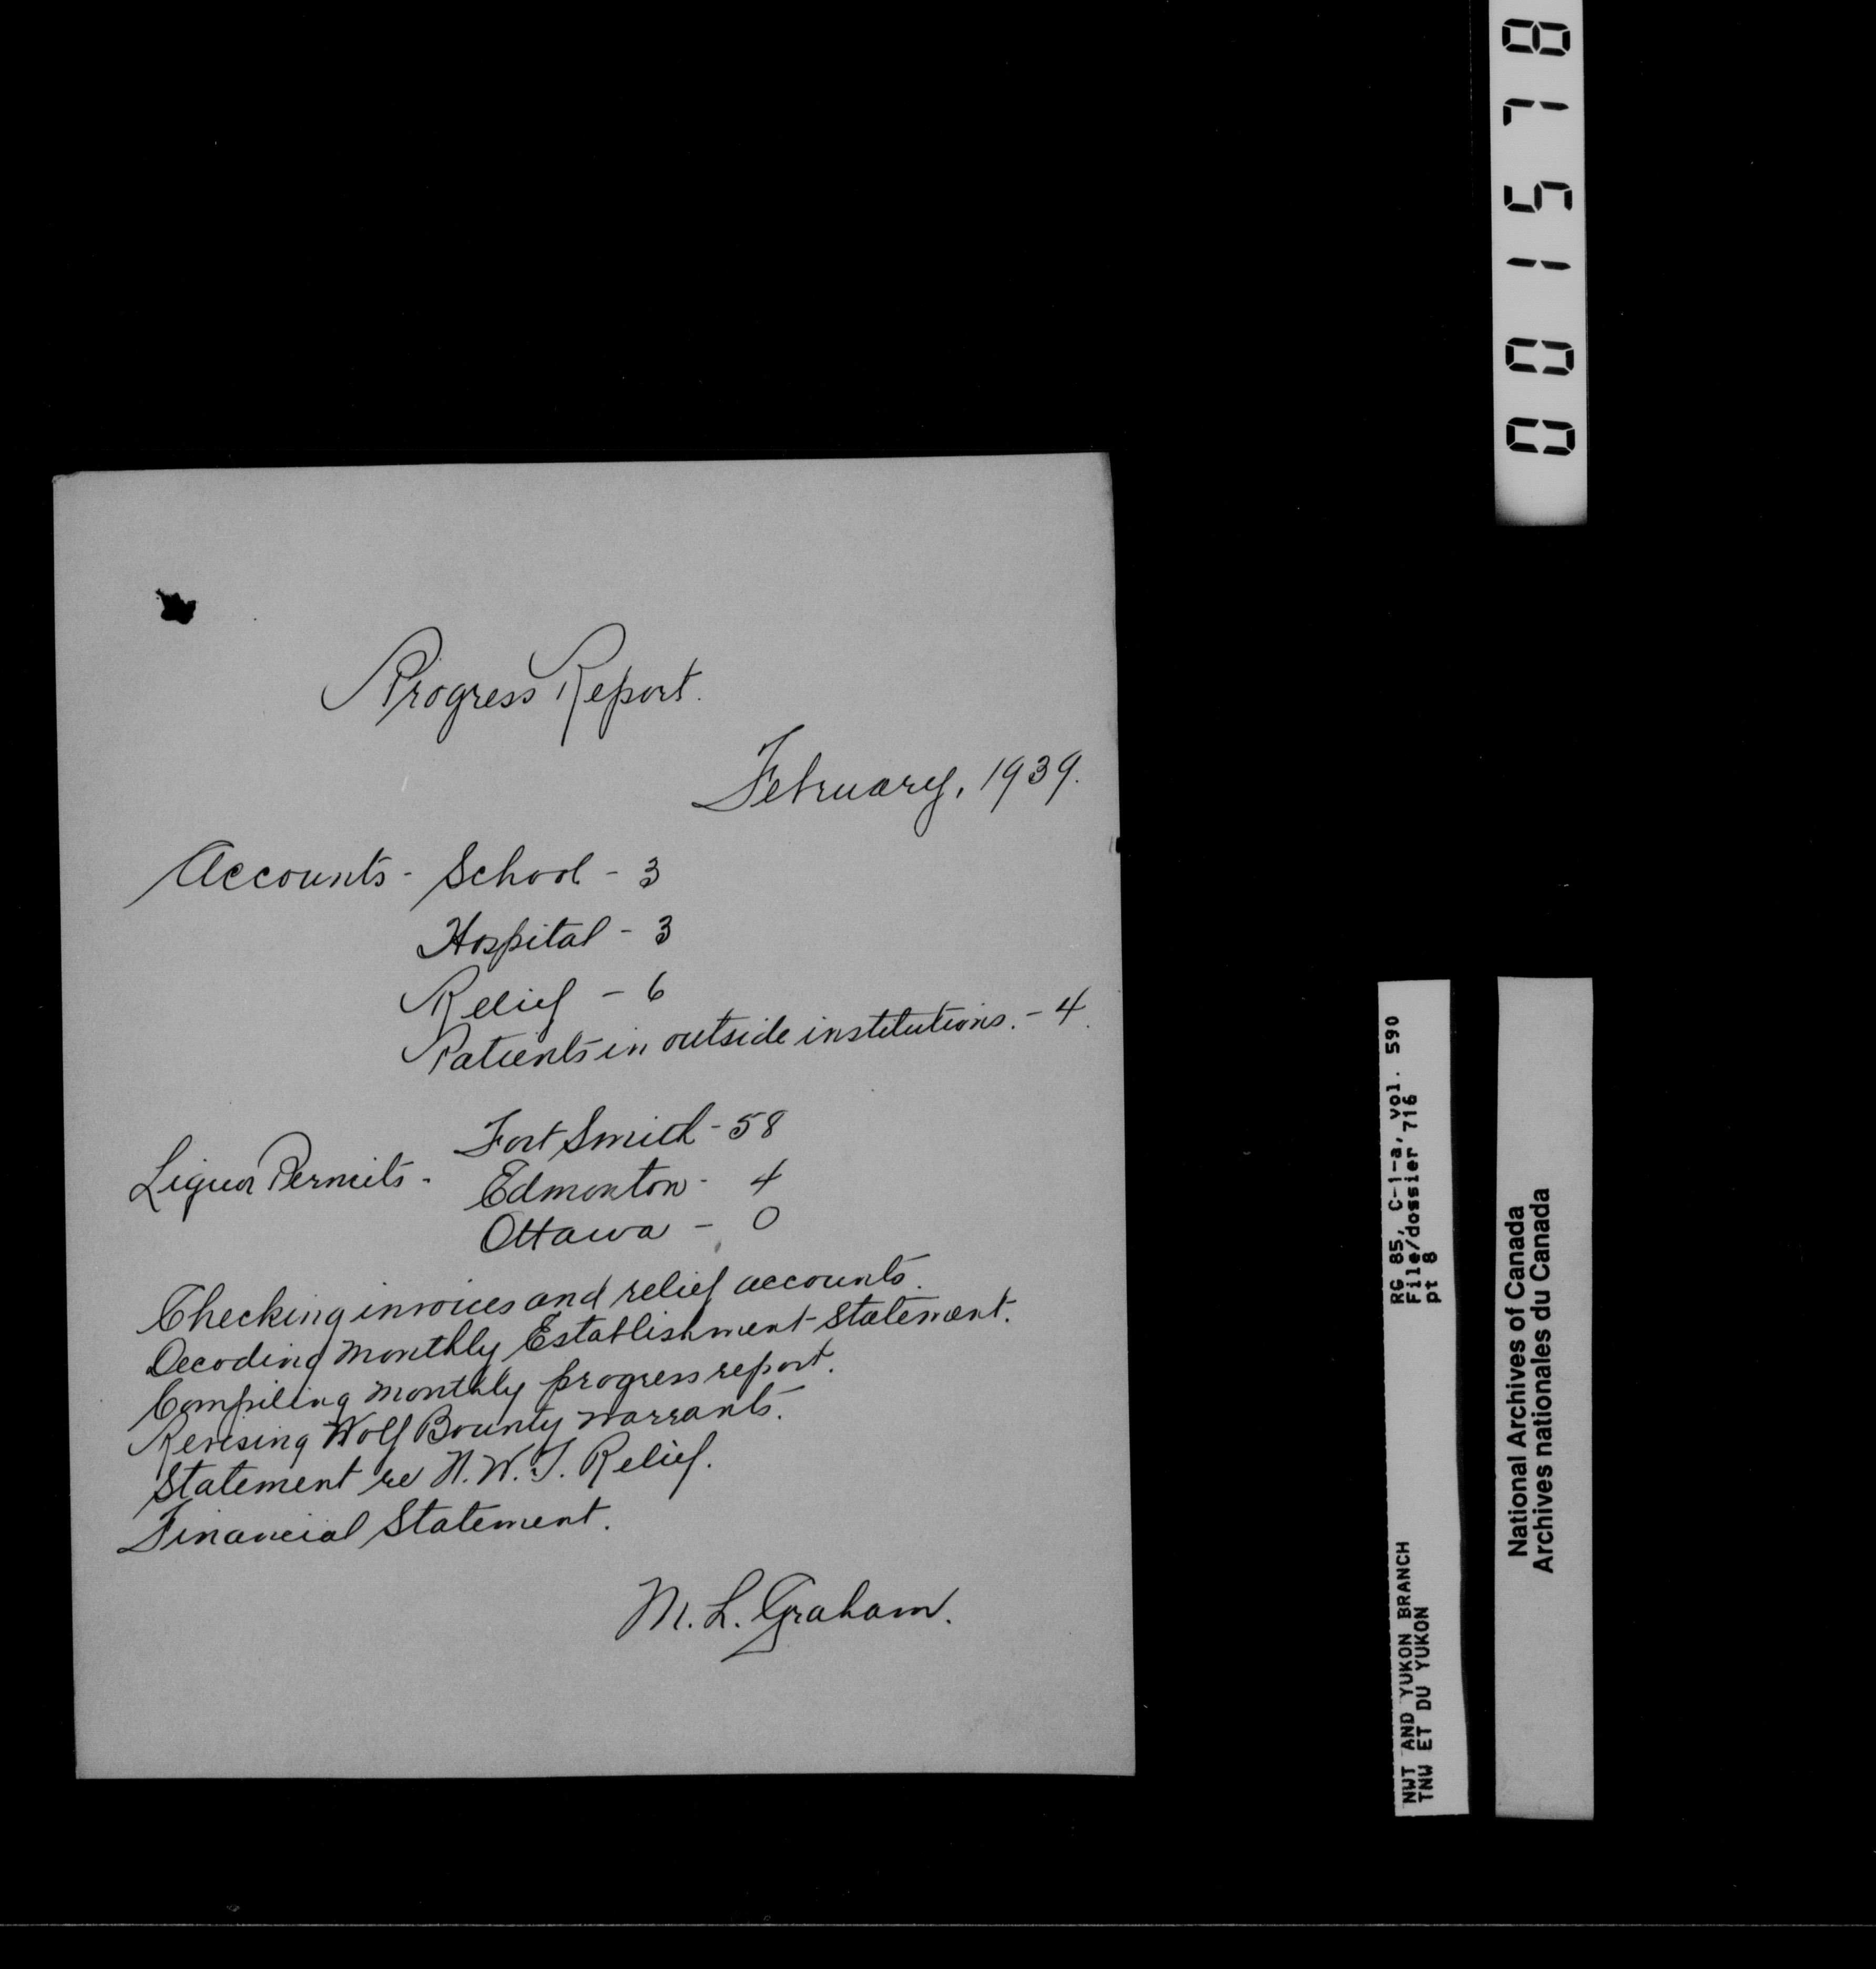 Progress Report.
February, 1939.
Accounts - School - 3
Hospital - 3
Relief - 6
Patients in outside institutions. - 4.
Fort Smith - 58
Liquor Permits - Edmonton - 4
Ottawa - 0
Checking invoices and relief accounts.
Decoding monthly Establishment Statement.
Compiling monthly progress report.
Revising Wolf Bounty warrants.
Statement re N.W.T. Relief.
Financial Statement.
M. L. Graham.
001578
RG 85, C-1-a, vol. 590
File/dossier 716
pt 8
NWT AND YUKON BRANCH
TNW ET DU YUKON
National Archives of Canada
Archives nationales du Canada